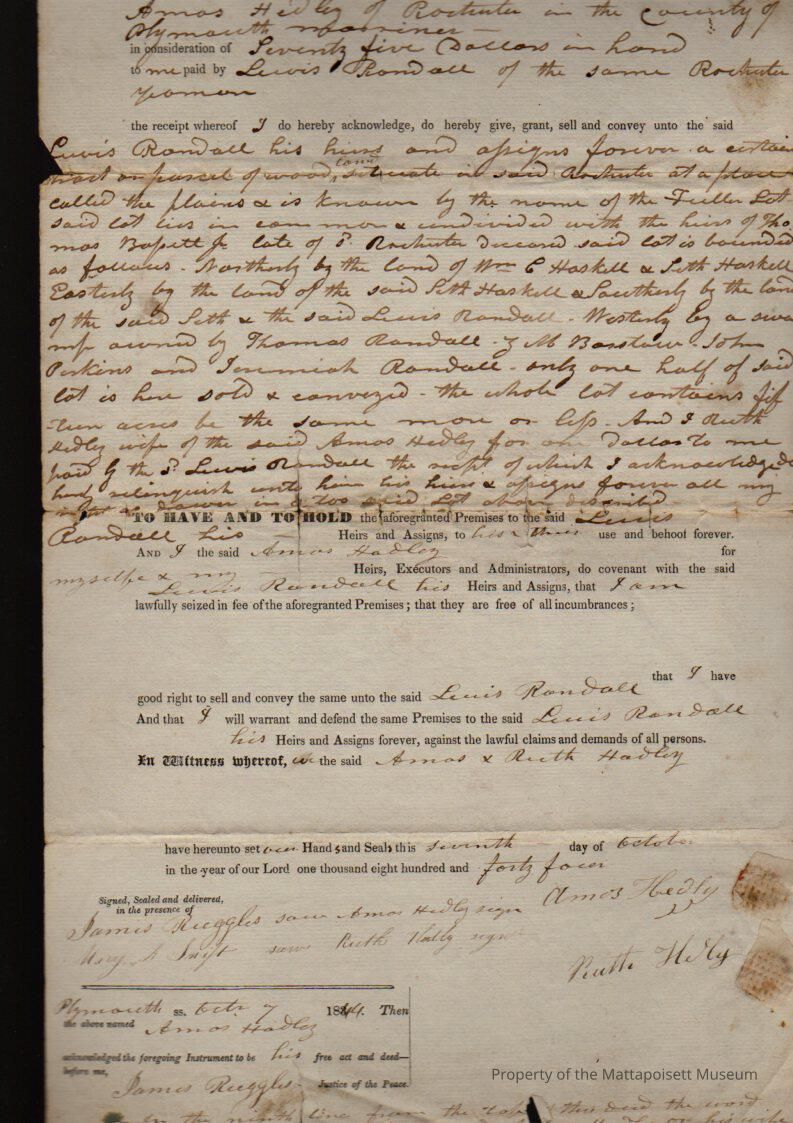 Amos Hedley of Rochester in the County of
Plymouth mariner —
in consideration of Seventy five Dollars in hand
to me paid by Lewis Randall of the same Rochester
yeoman
the receipt whereof I do hereby acknowledge, do hereby give, grant, sell and convey unto the said
Lewis Randall his hiers and assigns forever a certain
land
tract or parcel of wood, situate in said Rochester at a place
called the plains & is known by the name of the Fuller Lot
said lot lies in common & undivided with the hiers of Tho
mas Bassett Jr late of sd Rochester Deceased said lot is bounded
as follows - Northerly by the land of Wm C Haskell & Seth Haskell
Easterly by the land of the said Seth Haskell & Southerly by the land
of the said Seth & the said Lewis Randall - Westerly by a swa
mp owned by Thomas Randall - M Barstow - John
Perkins and Jeremiah Randall - only one half of said
lot is here sold & conveyed - the whole lot contains fif
-teen acres be the same more or less - And I Ruth
Hedley wife of the said Amos Hedley for one Dollar to me
paid by the sd Lewis Randall the recpt of which I acknowledge do
herby relinquish unto him his hiers & assigns forever all my
right of Dower in & too said Lot above described
TO HAVE AND TO HOLD the aforegranted Premises to the said Lewis
Randall his Heirs and Assigns, to his & thier use and behoof forever.
AND I the said Amos Hadley for
myselfe & my Heirs, Executors and Administrators, do covenant with the said
Lewis Randall his Heirs and Assigns, that I am
lawfully seized in fee of the aforegranted Premises; that they are free of all incumbrances;
that I have
good right to sell and convey the same unto the said Lewis Randall
And that I will warrant and defend the same Premises to the said Lewis Randall
his Heirs and Assigns forever, against the lawful claims and demands of all persons.
In Witness whereof, we the said Amos & Ruth Hadley
have hereunto set our Hands and Seals this seventh day of October
in the year of our Lord one thousand eight hundred and forty four
Signed, Sealed and delivered,
in the presence of
Amos Hedly
James Ruggles saw Amos Hedly sign
Mary A Swift saw Ruth Hadly sign
Ruth Hedly
Plymouth ss. Octr 7 1844. Then
the above named Amos Hadley
acknowledged the foregoing Instrument to be his free act and deed—
before me,
James Ruggles - Justice of the Peace.
Property of the Mattapoisett Museum
in the ninth line from the this deed the word